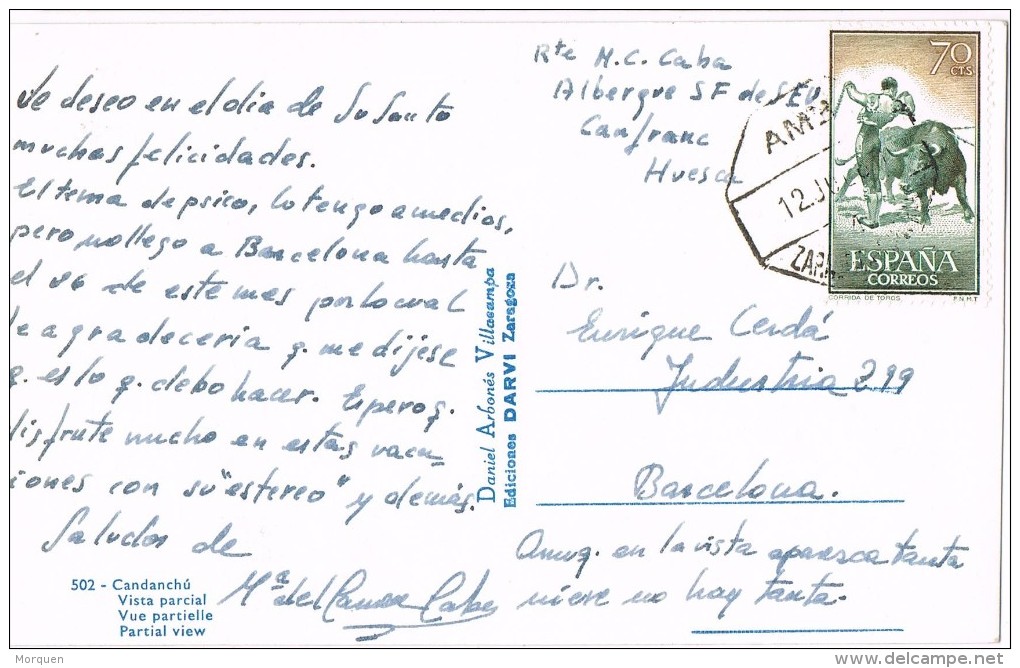 deseo en el día de Su Santo
muchas felicidades.
El tema de psico, lo tengo a medios,
pero no llego a Barcelona hasta
el 26 de este mes por lo cual
le agradecería q. me dijese
q. es lo q. debo hacer. Espero q.
disfrute mucho en estas vaca-
ciones con su "estereo" y demás.
Saludos de
Mª del Carmen
502 - Candanchú
Vista parcial
Vue partielle
Partial view
Daniel Arbonés Villacampa
Ediciones DARVI Zaragoza
Rte M. C. Caba
Albergue SF de SEU
Canfranc
Huesca
70
CTS
AMB
12 JU
ZARA
ESPAÑA
CORREOS
CORRIDA DE TOROS F.N.M.T
Dr.
Enrique Cerdá
Industria 299
Barcelona.
Aunq. en la vista aparezca tanta
nieve no hay tanta.
Morquen
www.delcampe.net